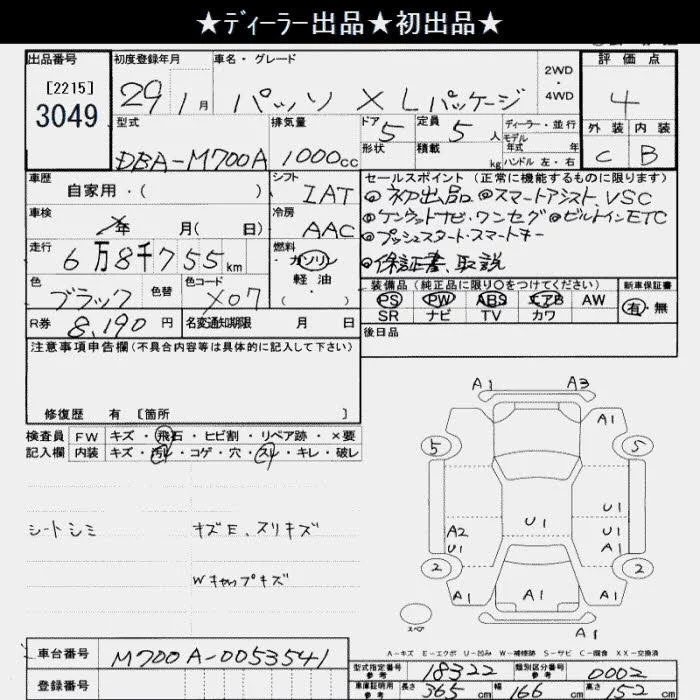 ★ディーラー出品★初出品★
出品番号 初度登録年月 車名・グレード 2WD・4WD 評価点
[2215]
3049 29 1月 パッソ X Lパッケージ 4
型式 排気量 ドア 5 定員 5人 ディーラー・並行 外装 内装
モデル年式 年
DBA-M700A 1000cc 形状 積載 kg ハンドル 左・右 C B
車歴 シフト セールスポイント (正常に機能するものに限ります)
自家用・( ) IAT ◎初出品 ◎スマートアシスト、VSC
車検 年 月(日) 冷房 AAC ◎ケンウッドナビ・ワンセグ ◎ビルトインETC
◎プッシュスタート・スマートキー
走行 6万8千755km 燃料 ガソリン ◎保証書、取説
軽油
( )
色 ブラック 色替 色コード X07 装備品(純正品に限り○をつけてください) 新車保証書
PS PW ABS エアB AW 有・無
R券 8,190円 名変通知期限 月 日 SR ナビ TV カワ
注意事項申告欄(不具合内容等は具体的に記入して下さい) 後日品
修復歴 有 [箇所 ]
検査員 FW キズ・飛石・ヒビ割・リペア跡・×要
記入欄 内装 キズ・汚レ・コゲ・穴・スレ・キレ・破レ
シートシミ キズE、スリキズ
Wキャップキズ
A1 A3
A1
5 5
U1
A2 U1
U1 A1
2 2
A1 A1 A1
A1
スペア
A-キズ E-エクボ U-凹み W-補修跡 S-サビ C-腐食 XX-交換済
車台番号 M700A-0053541 型式指定番号 参考 18322 類別区分番号 参考 0002
登録番号 車庫証明用 参考 長さ 365cm 幅 166cm 高さ 152cm